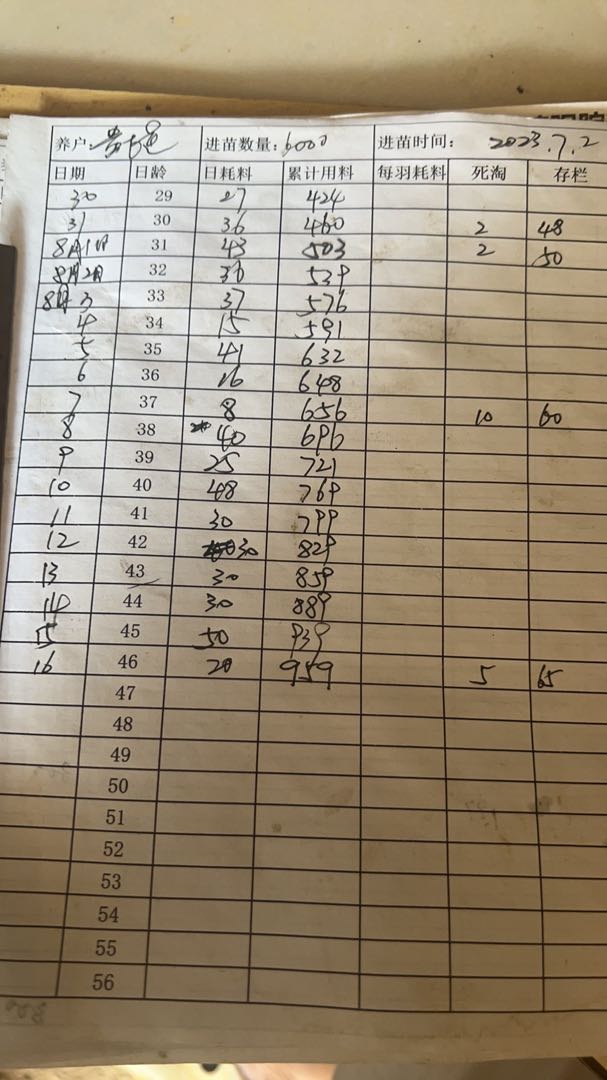 养户: 进苗数量: 6000 进苗时间: 2023.7.2
日期 日龄 日耗料 累计用料 每羽耗料 死淘 存栏
30 29 27 424
31 30 36 460 2 48
8月1日 31 43 503 2 50
8月2日 32 36 539
8月3 33 37 576
4 34 15 591
5 35 41 632
6 36 16 648
7 37 8 656 10 60
8 38 40 696
9 39 25 721
10 40 48 769
11 41 30 799
12 42 30 829
13 43 30 859
14 44 30 889
15 45 50 939
16 46 20 959 5 65
47
48
49
50
51
52
53
54
55
56